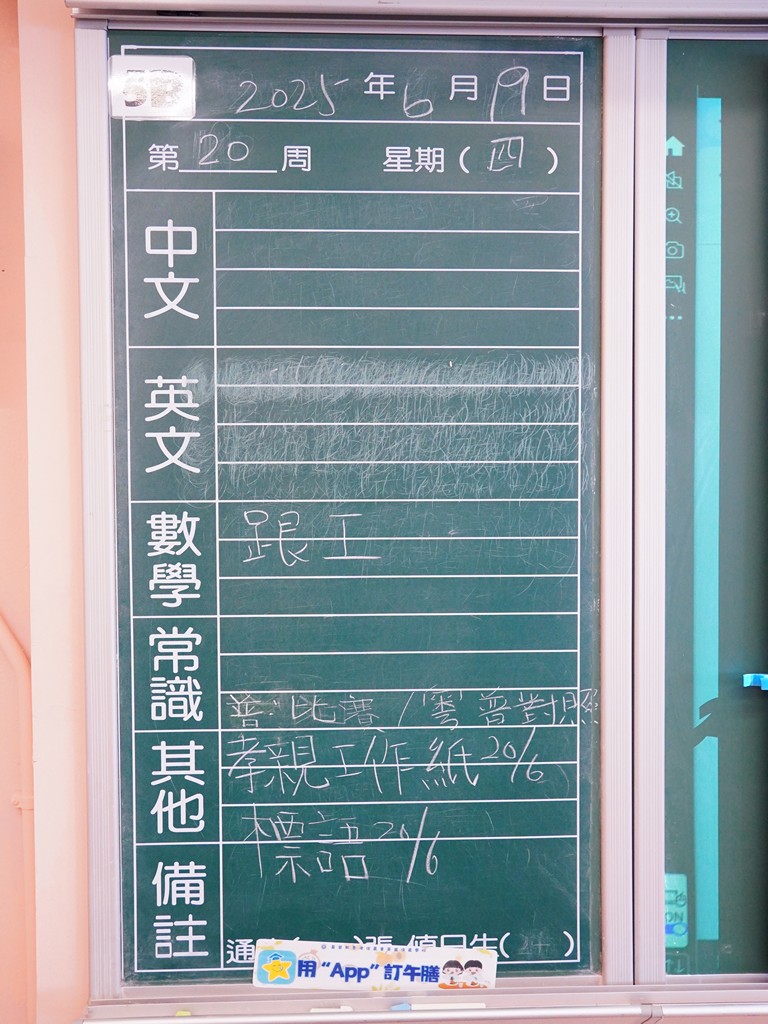 5B
2025年6月19日
第20周 星期(四)
中文
英文
數學 跟工
常識 普 比賽/粵普對照
其他 孝親工作紙 20/6
標語 20/6
備註
通
用“App”訂午膳